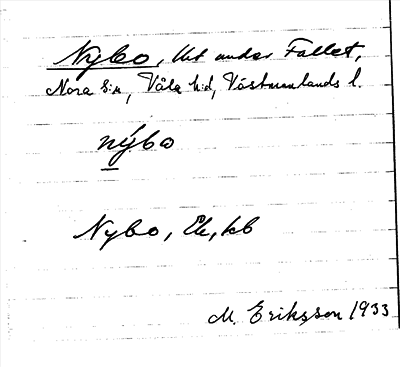 Nybo, lht under Fallet,
Nora s:n, Våla h:d, Västmanlands l.
nýbo
Nybo, Ek, kb
M. Eriksson 1933